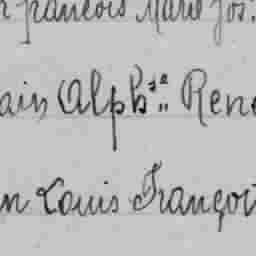 r francois Marie Jos.
ain Alphse.. René
n Louis François